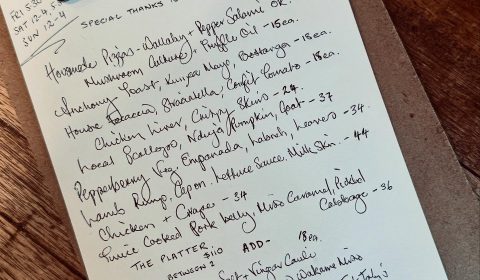 FRI 5.30
SAT 12-4, 5
SUN 12-4
SPECIAL THANKS TO
Housemade Pizzas - Wallaby + Pepper Salami OR.
Mushroom Culture + Truffle Oil - 15ea.
Anchovy Toast, Kewpie Mayo, Bottarga - 15ea.
House Focaccia, Straciatella, Confit Tomato - 18ea.
Chicken Liver, Crispy Skins - 24.
Local Scallops, Nduja
Pepperberry Veg Empanada, Pumpkin, Goat - 37
Lamb Rump, Labneh, Leaves - 34
Capon, Lettuce Sauce, Milk Skin. - 44
Chicken + Grapes - 34
Twice Cooked Pork belly, Miso Caramel, Pickled Cabbage - 36
THE PLATTER
$110
BETWEEN 2
ADD-
18pa.
+ Ginger
Wakame Miso